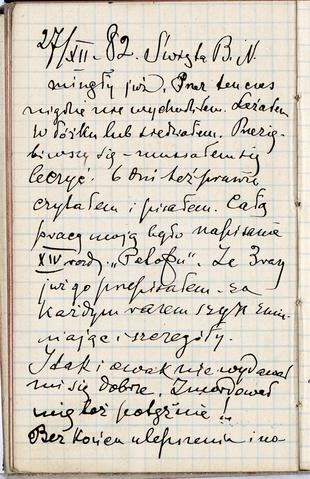 27/XII - 82. Święta B.N.
minęły już. Przez ten czas
nigdzie nie wychodziłem. Leżałem
w łóżku lub siedziałem. Przezię-
biwszy się - musiałem się
leczyć. 6 dni też prawie
czytałem i pisałem. Całą
pracą moją było napisanie
XIV rozdz. "Potopu". Ze 3 razy
już go przepisałem. Za
każdym razem szyk zmie-
niając i szczegóły.
I tak i owak nie wydawał
mi się dobrze. Zmordował
mię też potężnie!
Bez końca ulepszenia i na-